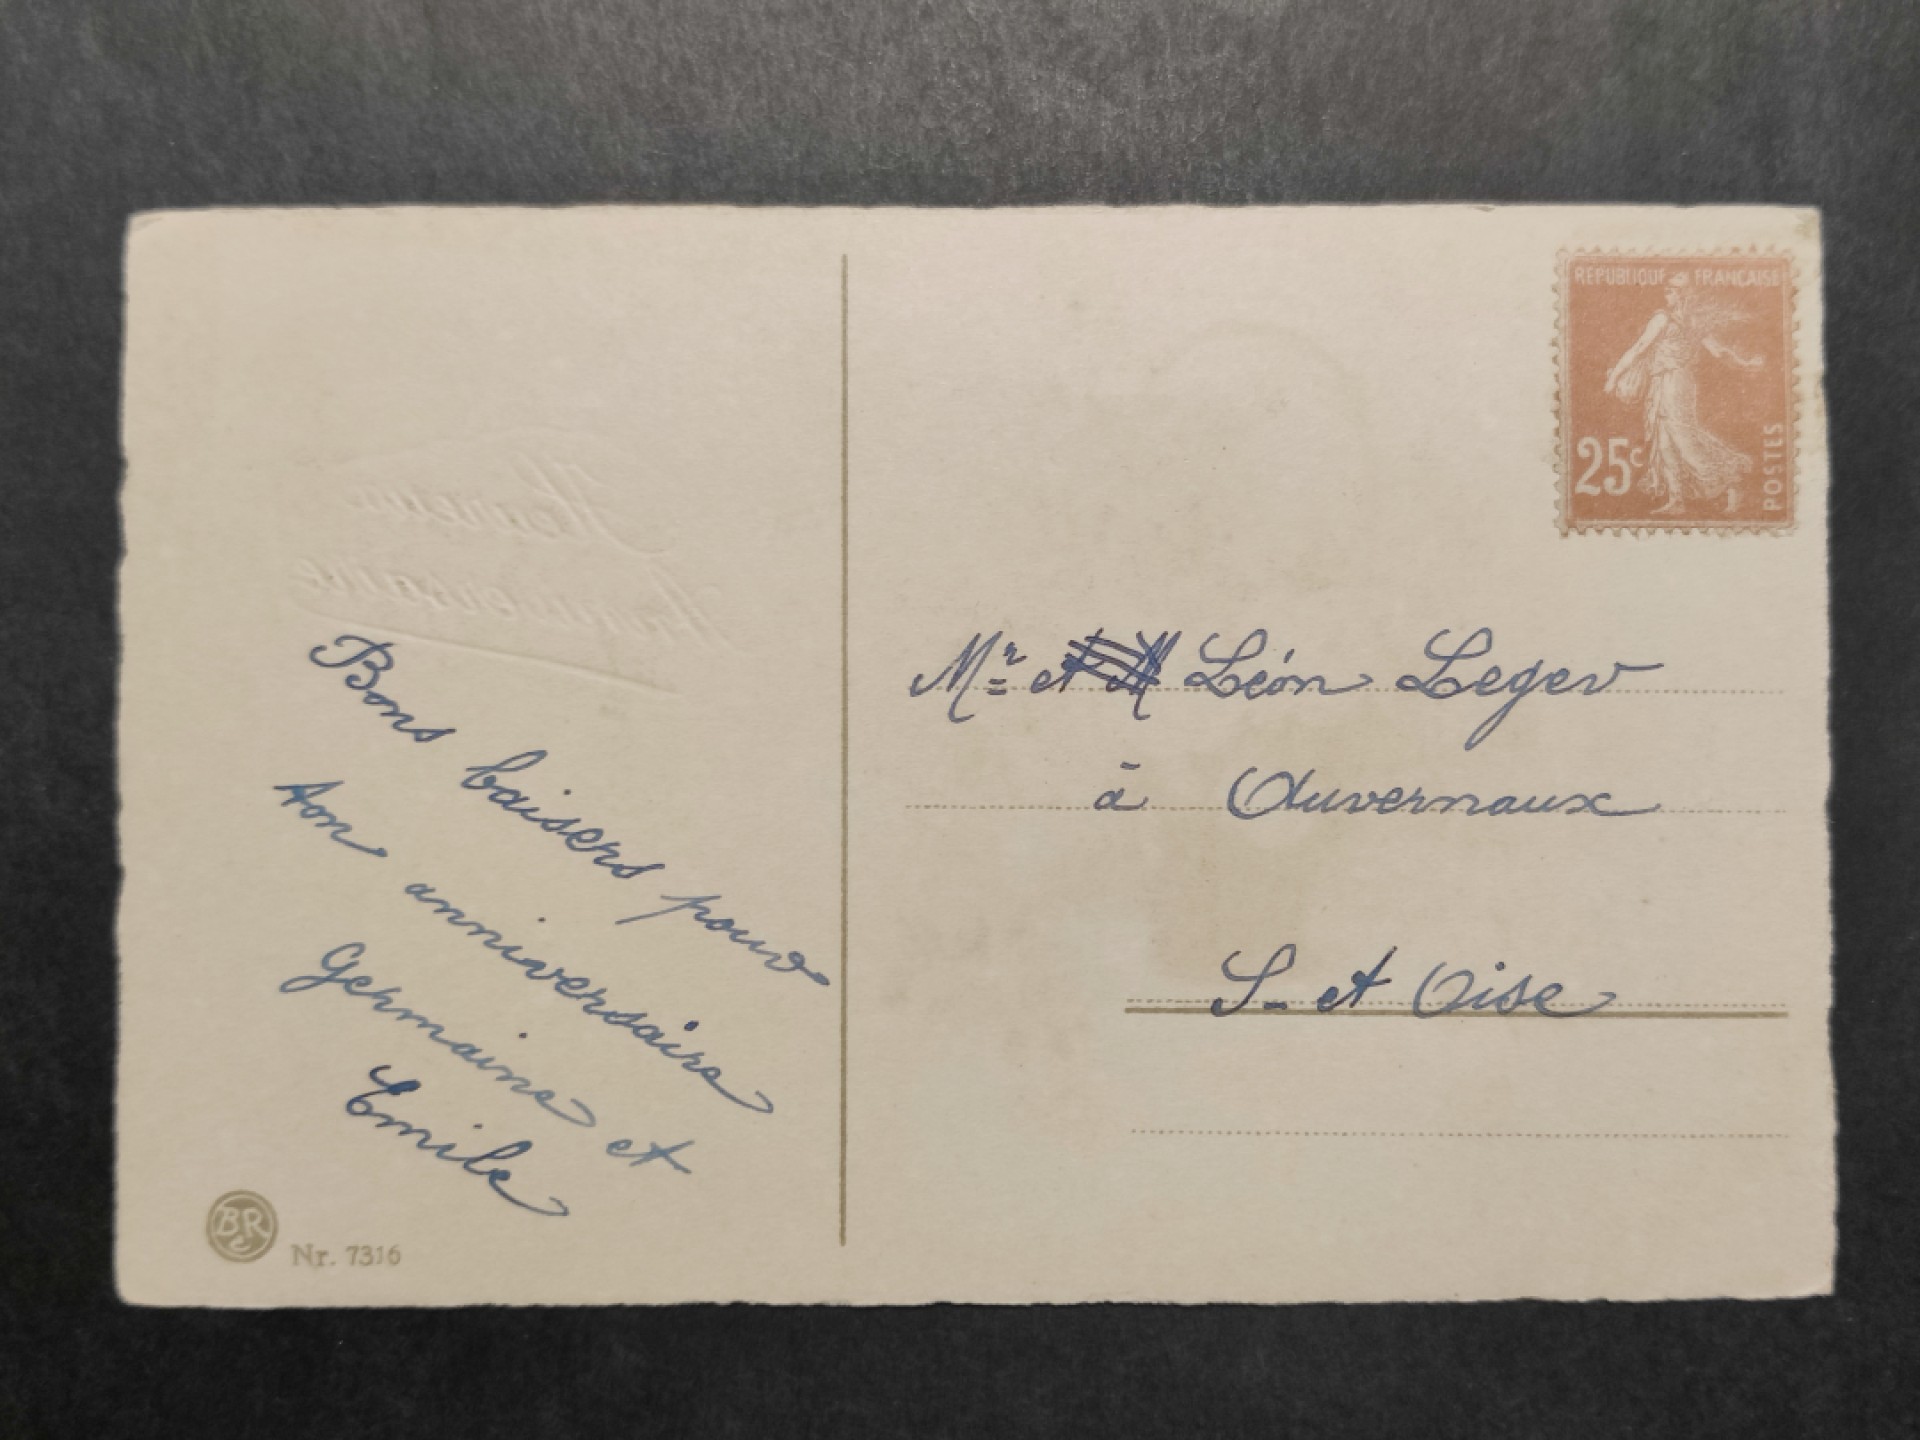 Heureux
Anniversaire
Bons baisers pour
ton anniversaire
Germaine et
Emile
BR
Nr. 7316
REPUBLIQUE FRANCAISE
25c
POSTES
Mr et M Léon Leger
à Auvernaux
S- et Oise